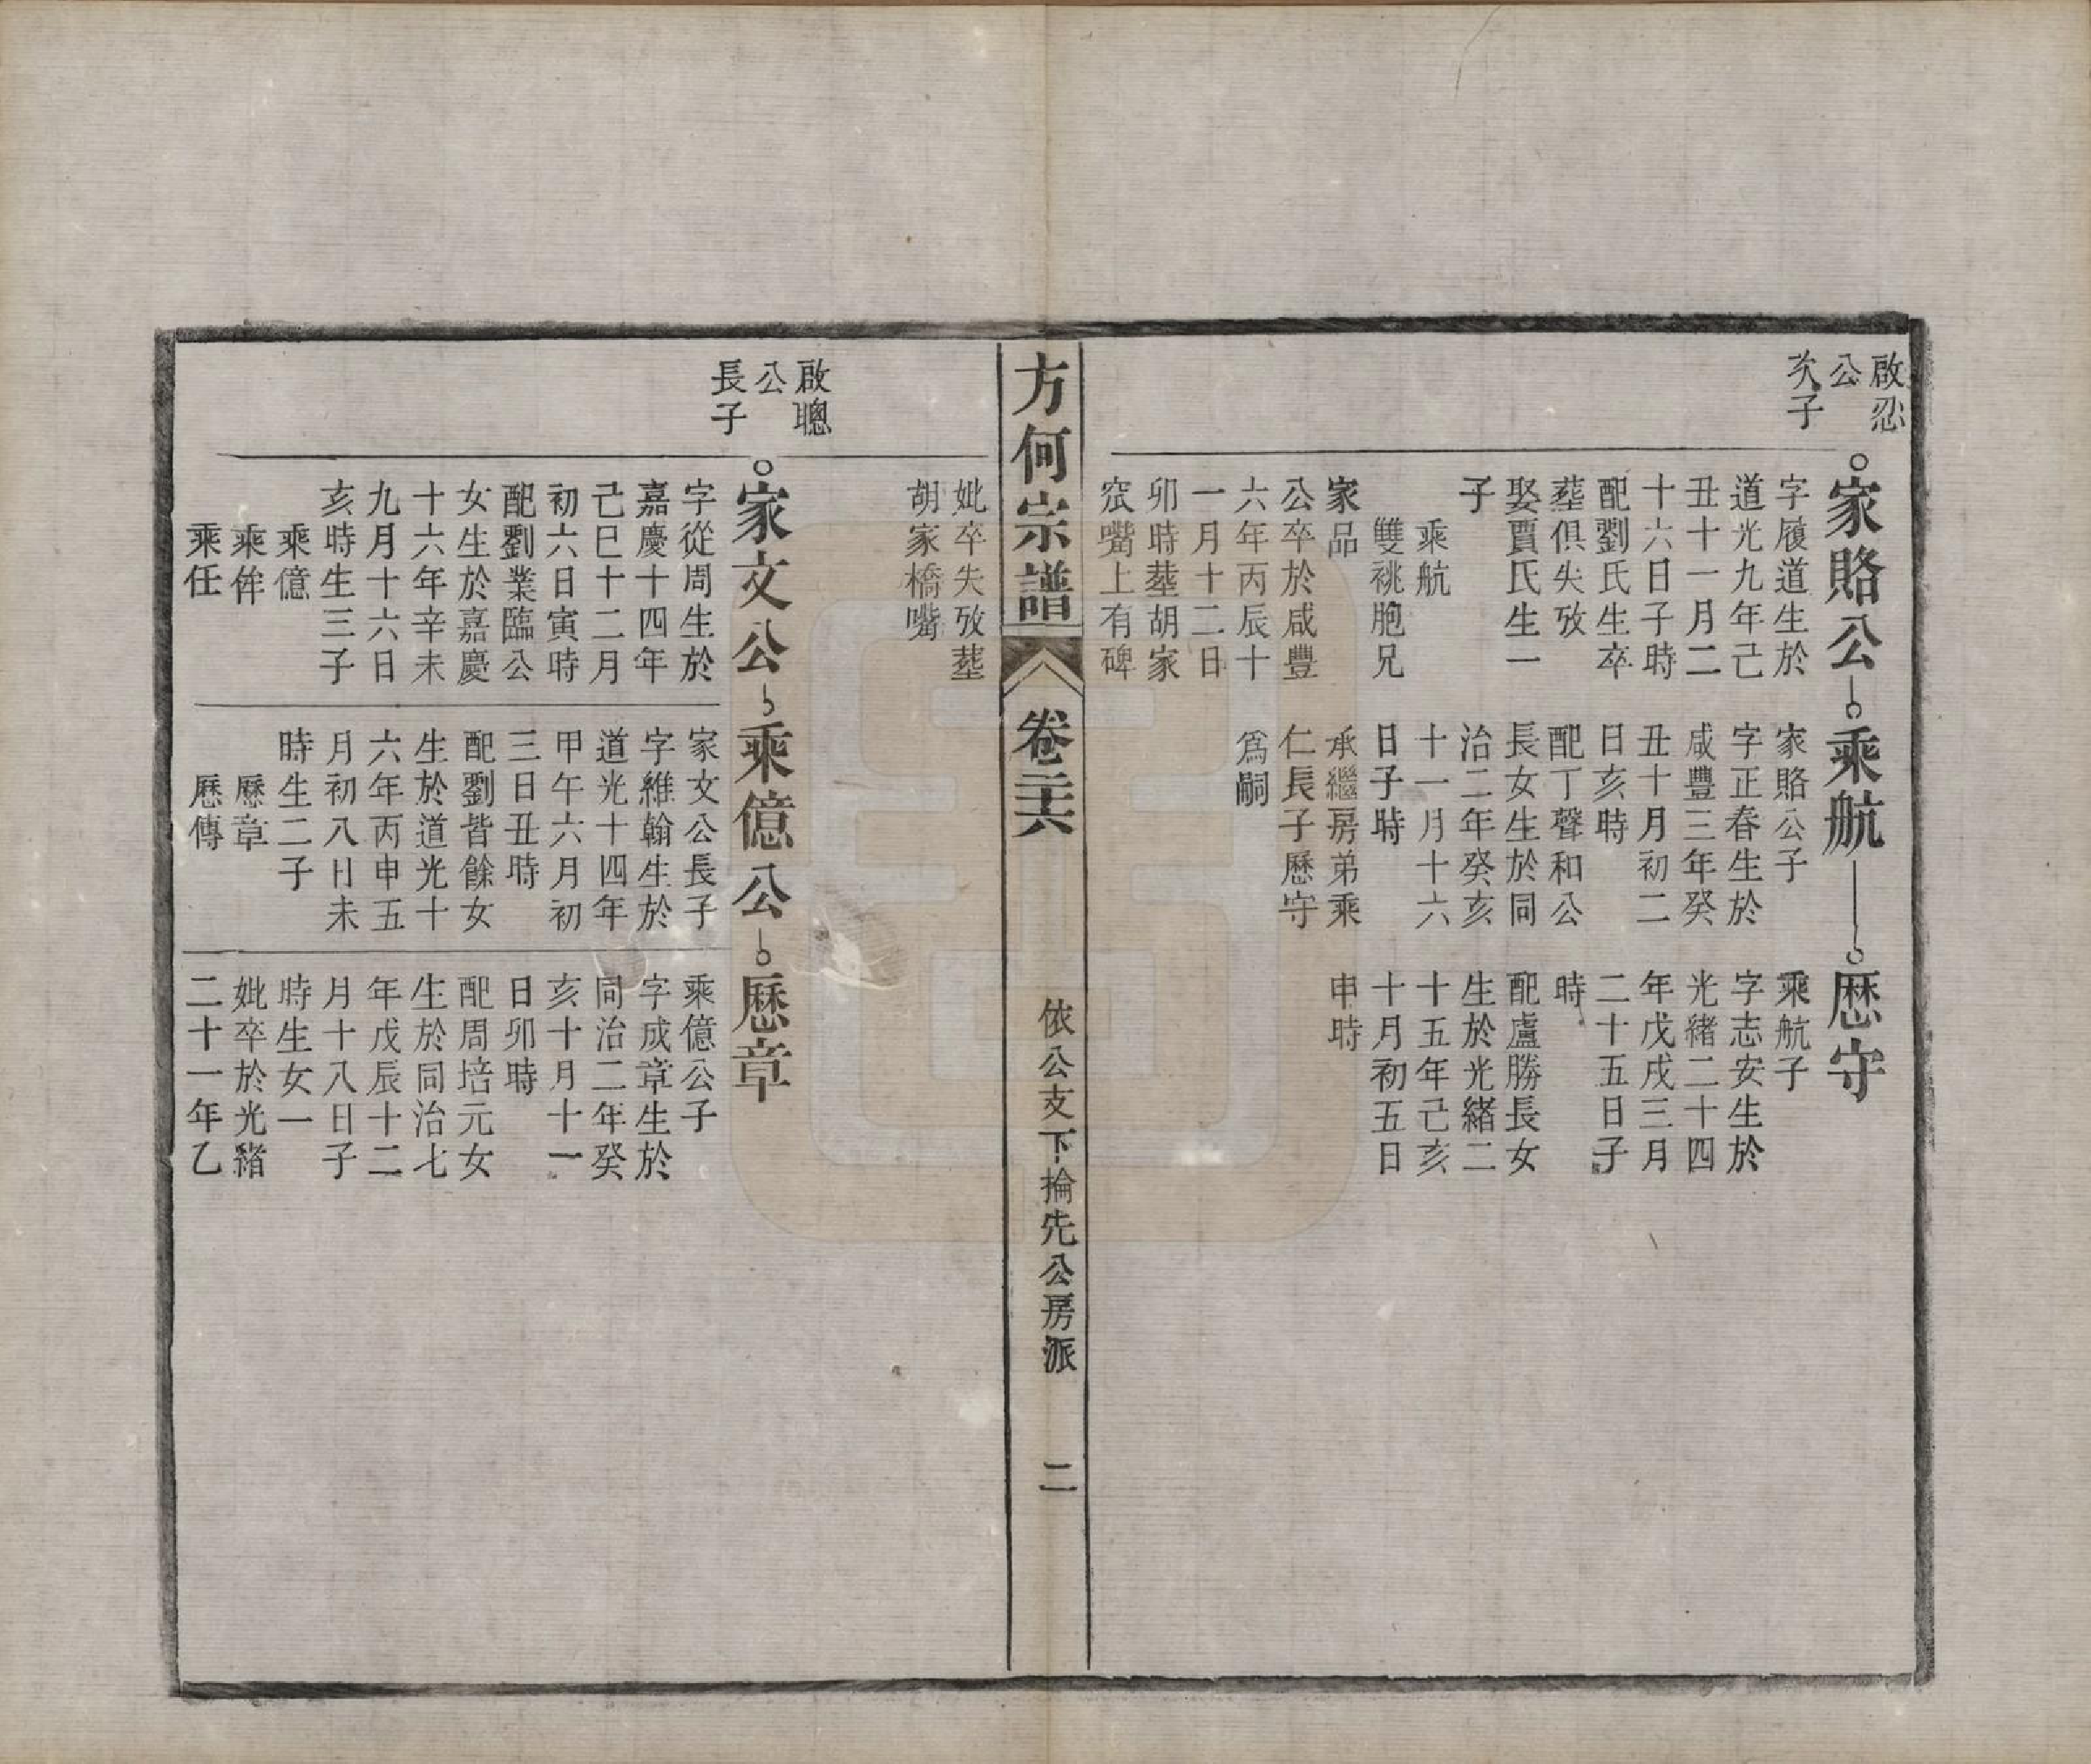 啟忍
公
次子
家賂公
乘航
歴守
字履道生於
道光九年己
丑十一月二
十六日子時
配劉氏生卒
塟俱失攷
娶賈氏生一
子
乘航
雙祧胞兄
家品
公卒於咸豐
六年丙辰十
一月十二日
卯時塟胡家
窊嘴上有碑
家賂公子
字正春生於
咸豐三年癸
丑十月初二
日亥時
配丁聲和公
長女生於同
治二年癸亥
十一月十六
日子時
承繼房弟乘
仁長子歴守
爲嗣
乘航子
字志安生於
光緒二十四
年戊戌三月
二十五日子
時
配盧勝長女
生於光緒二
十五年己亥
十月初五日
申時
方何宗譜
卷二六
依公支下掄先公房派
二
妣卒失攷塟
胡家橋嘴
啟聰
公
長子
家文公
乘億公
歴章
字從周生於
嘉慶十四年
己巳十二月
初六日寅時
配劉業臨公
女生於嘉慶
十六年辛未
九月十六日
亥時生三子
乘億
乘侔
乘任
家文公長子
字維翰生於
道光十四年
甲午六月初
三日丑時
配劉皆餘女
生於道光十
六年丙申五
月初八日未
時生二子
歴章
歴傳
乘億公子
字成章生於
同治二年癸
亥十月十一
日卯時
配周培元女
生於同治七
年戊辰十二
月十八日子
時生女一
妣卒於光緒
二十一年乙